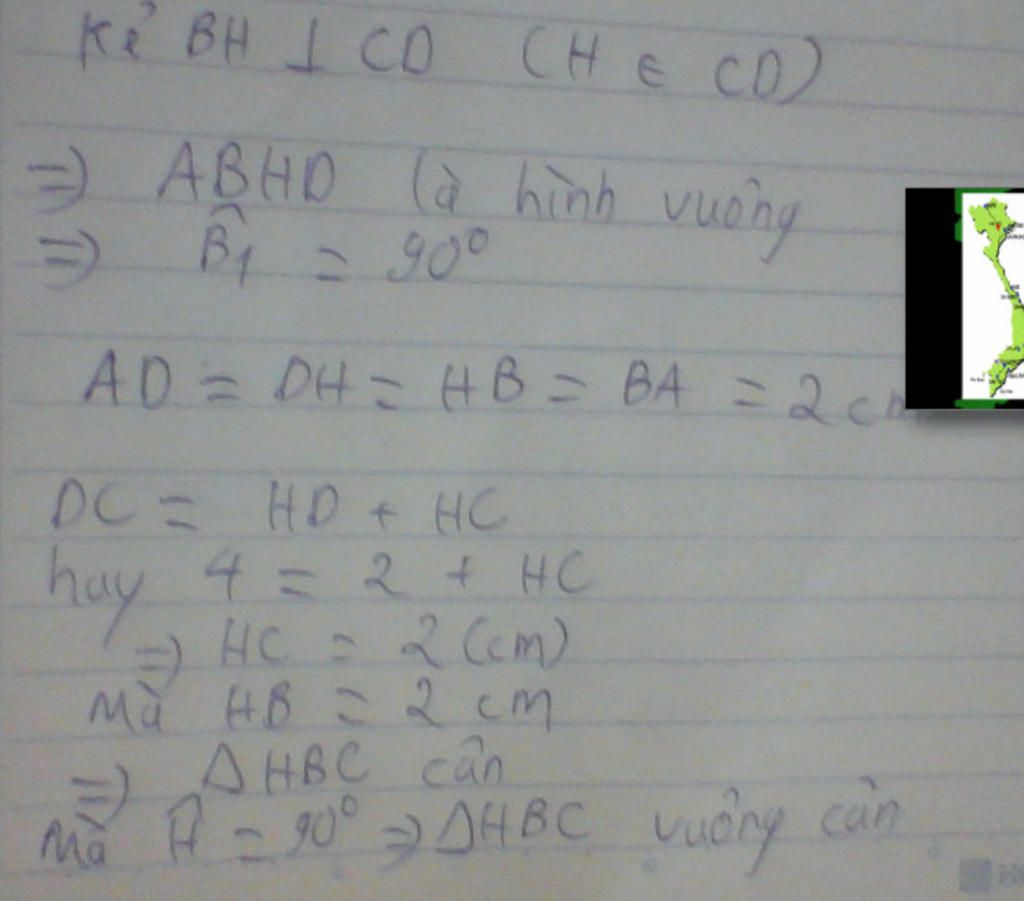 Kẻ BH ⊥ CD (H ∈ CD)
=> ABHD là hình vuông
=> B̂1 = 90°
AD = DH = HB = BA = 2
DC = HD + HC
hay 4 = 2 + HC
=> HC = 2 (cm)
Mà HB = 2 cm
=> Δ HBC cân
Mà Ĥ = 90° => ΔHBC vuông cân